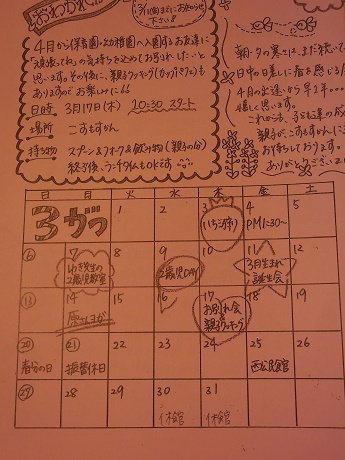 おわかれ会
3/11(金)までにお知らせ
下さい!!
4月から保育園・幼稚園へ入園するお友達に
"頑張ってね"の気持ちを込めてお別れ会したいと
思います。その後に、親子クッキング(カップケーキ)も
ありますのでお楽しみに
日時 3月17日(木) 10:30 スタート
場所 こすもすかん
持ち物 スプーン&フォーク&飲み物(親子の分)
終了後、ランチタイムもOKです
朝・夕の寒さは、まだ続いて
日中の日差しに春を感じる
4月の出逢いから早1年
嬉しく思います。
これからも、子ども達の成
親子がこすもすかんに
お待ちしております。
ありがとうござい
日 月 火 水 木 金 土
3がつ
1 2 3 4 5
PM1:30~
6 7 8 9 10 11 12
ゆき先生の
2歳児教室
2歳児DAY
3月生まれ
誕生会
13 14 15 16 17 18 19
原さんヨガ
お別れ会
&
親子クッキング
20 21 22 23 24 25 26
春分の日 振替休日 西公民館
27 28 29 30 31
休館 休館